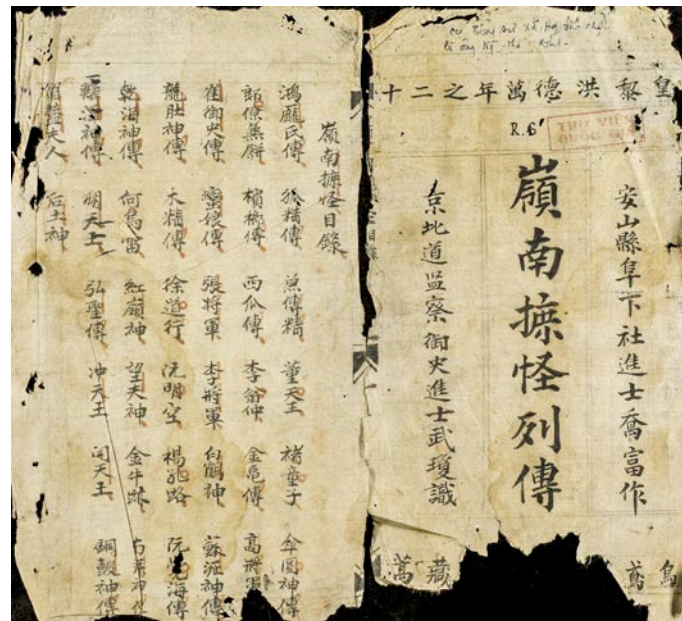 皇黎洪德萬年之二十
R. 6
THƯ VIỆN
安山縣阜下社進士喬富作
嶺南摭怪列傳
京北道监察御史進士武瓊識
藏萬
嶺南摭怪目錄
鴻龐氏傳 狐精傳 漁傳精 董天王 褚童子 傘圓神傳
郎僚蒸餅 檳榔傳 西瓜傳 李翁仲 金亀傳 高將軍
崔御史傳 蠻娘傳 張將軍 李將軍 白鶴神 蘇瀝神傳
龍肚神傳 木精傳 徐道行 阮明空 楊孔路 阮覺海傳
乾海神傳 何烏雷 紅嶺神 望夫神 金牛跡
神傳 朔天王 弘聖傳 冲天王 開天王 銅鼓神傳
夫人 后土神